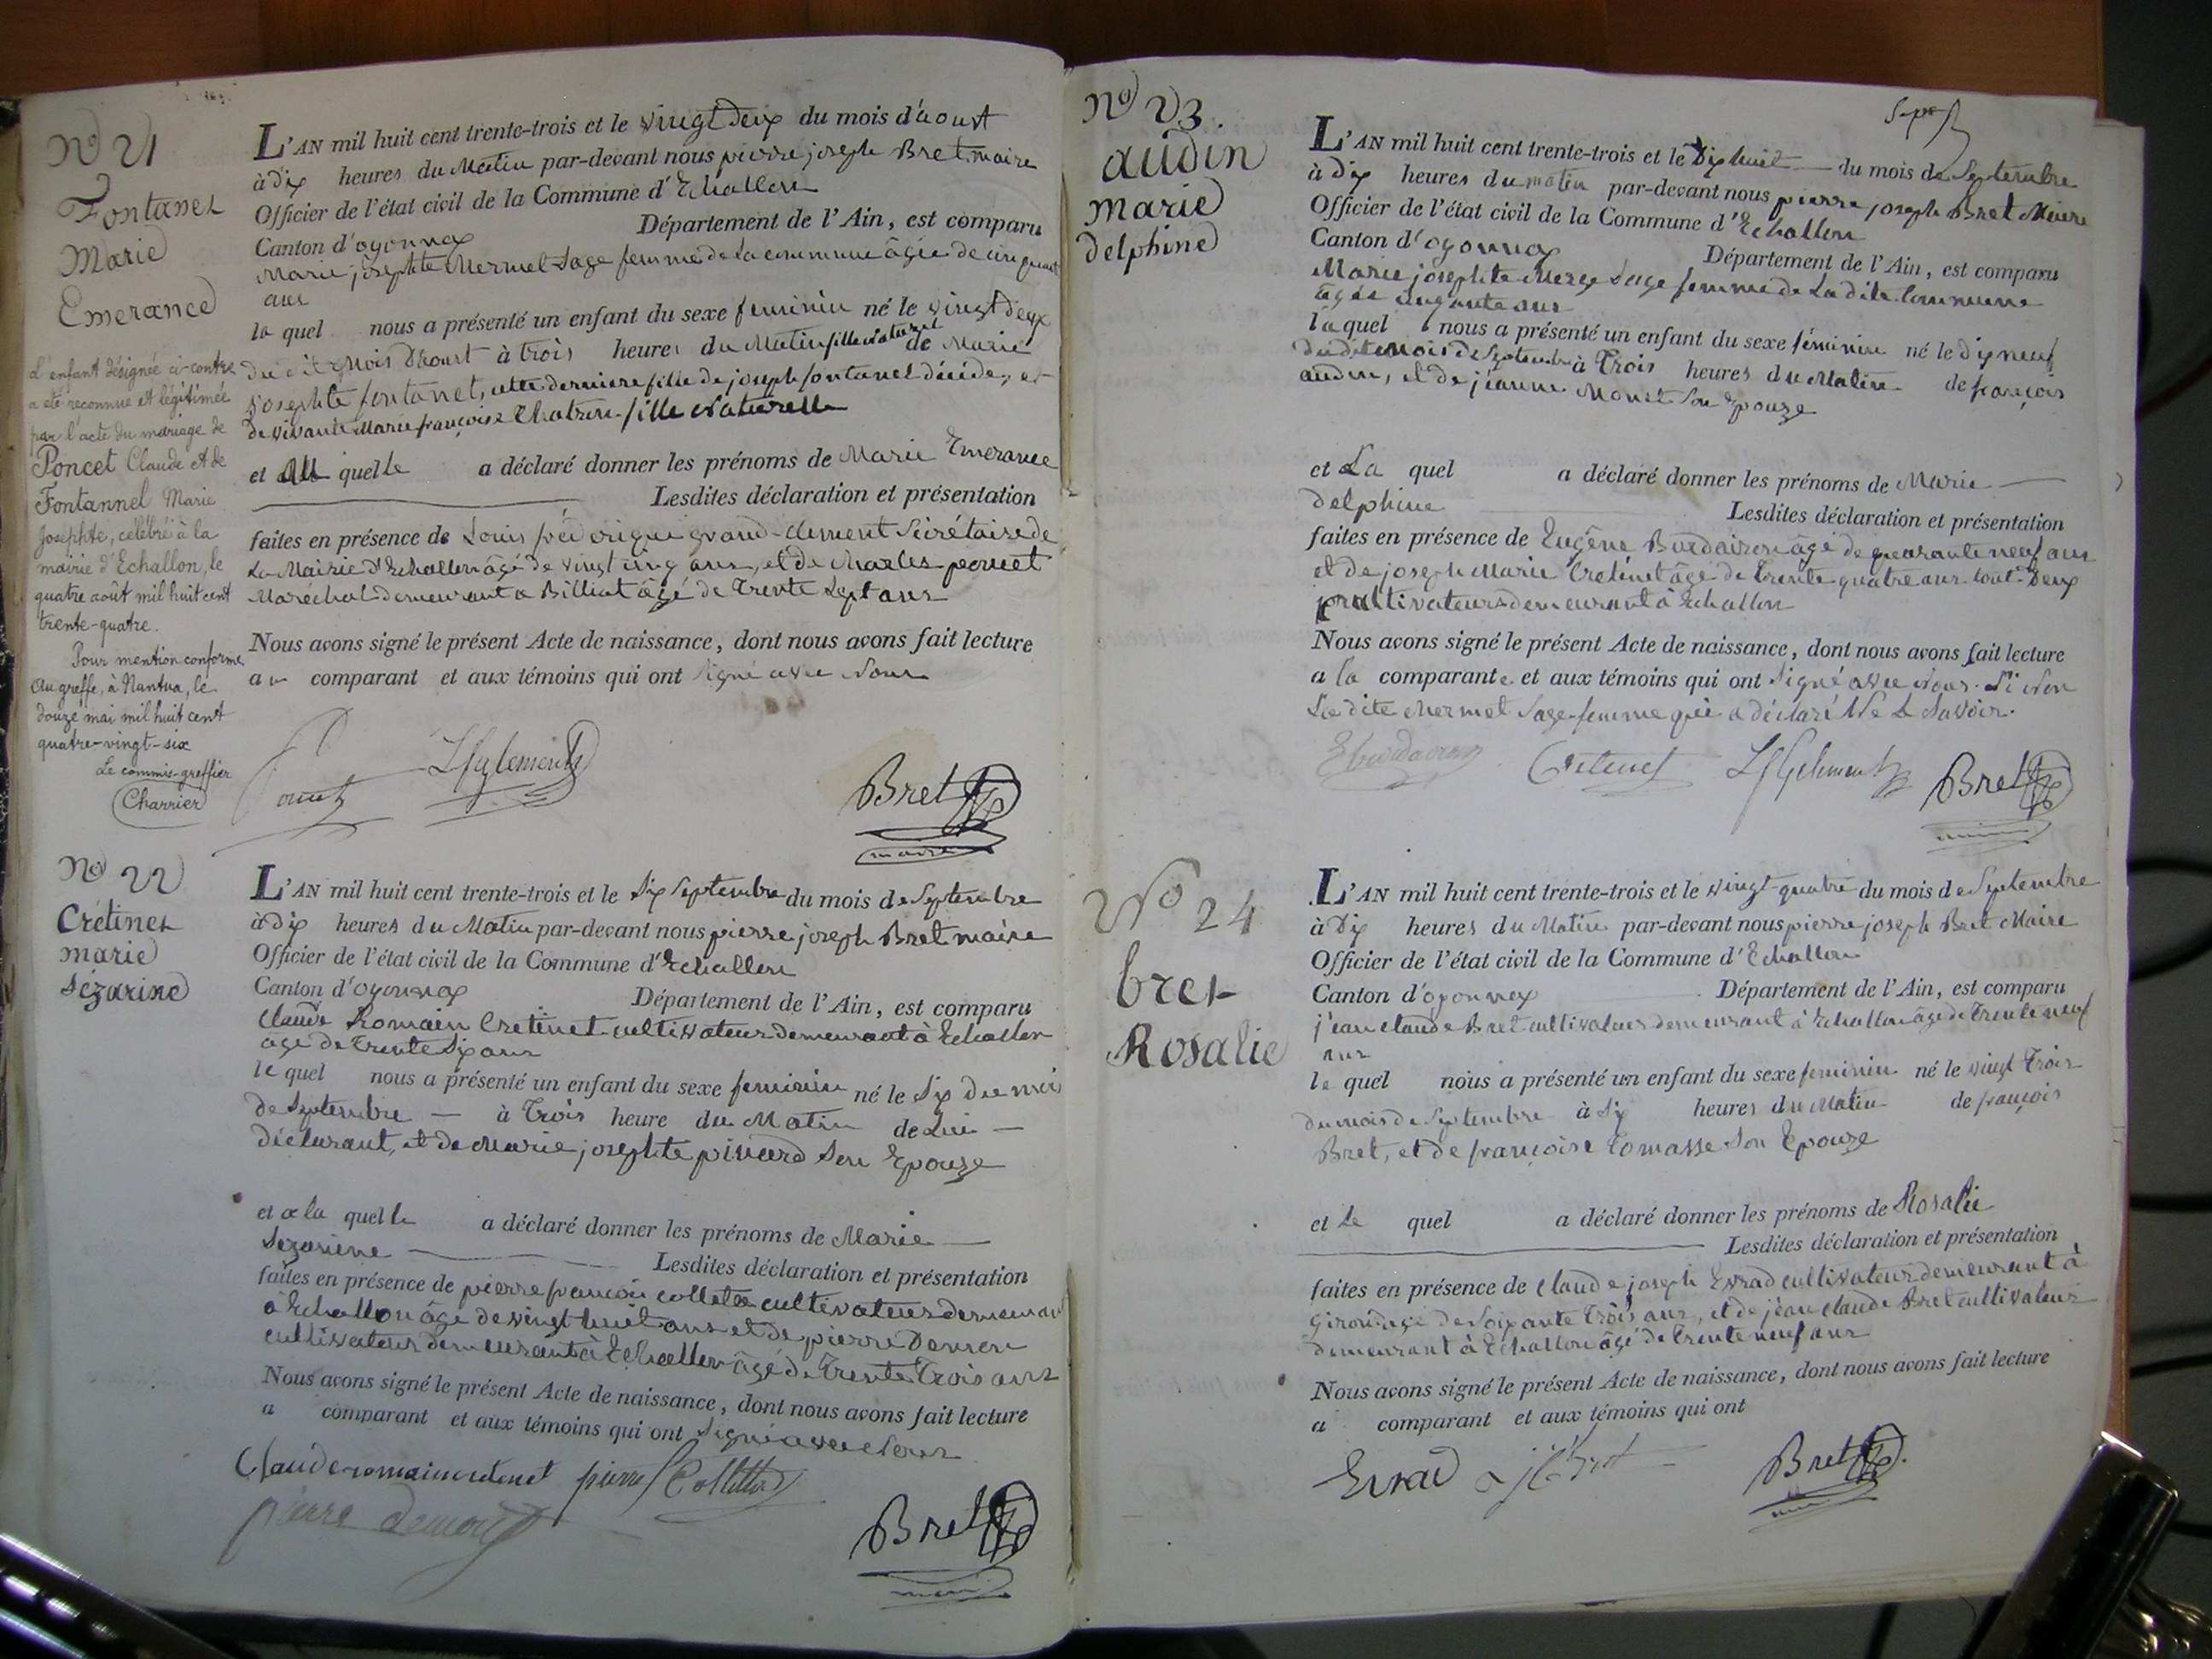 No 21
Fontanet
Marie
Emerance
L'enfant désignée ci-contre
a été reconnue et légitimée
par l'acte du mariage de
Poncet Claude et de
Fontannel Marie
Josephte, célébré à la
mairie d'Echallon, le
quatre août mil huit cent
trente-quatre.
Pour mention conforme
Au greffe, à Nantua, le
douze mai mil huit cent
quatre-vingt-six
Le commis-greffier
Charrier
L'AN mil huit cent trente-trois et le vingt deux du mois d'aoust
à dix heures du Matin par-devant nous pierre joseph Bret maire
Officier de l'état civil de la Commune d'Echallon
Canton d'oyonnax Département de l'Ain, est comparu
Marie josephte Mermet Sage femme de La commune âgée de cinquante
ans
la quel nous a présenté un enfant du sexe feminin né le vingt deux
du dit Mois D'Aoust à trois heures du Matin fille Naturel de Marie
Josephte fontanet, cette derniere fille de joseph fontanet décédé, et
de vivante Marie françoise Chatron fille Naturelle
et quelle a déclaré donner les prénoms de Marie Emerance
Lesdites déclaration et présentation
faites en présence de Louis fréderique grand-clement Sécrétaire de
La Mairie d'Echallon âgé de vingt cinq ans, et de Charles
Marechal demeurant a Billiat âgé de Trente Sept ans
Nous avons signé le présent Acte de naissance, dont nous avons fait lecture
au comparant et aux témoins qui ont Signé avec Nous
LfgClement
Bret
maire
No 22
Crétinet
marie
Sézarine
L'AN mil huit cent trente-trois et le Six Septembre du mois de Septembre
à dix heures du Matin par-devant nous pierre joseph Bret maire
Officier de l'état civil de la Commune d'Echallon
Canton d'oyonnax Département de l'Ain, est comparu
Claude Romain Cretinet cultivateur demeurant à Echallon
âgé de Trente Six ans
le quel nous a présenté un enfant du sexe feminin né le Six du mois
de Septembre à Trois heure du Matin de Lui
déclarant, et de Marie josephte pinard Son Epouze
et a la quelle a déclaré donner les prénoms de Marie
Sezarine Lesdites déclaration et présentation
faites en présence de pierre françois collet cultivateur demeurant
à Echallon âgé de vingt huit ans et de pierre Demon
cultivateur demeurant à Echallon âgé de Trente Trois ans
Nous avons signé le présent Acte de naissance, dont nous avons fait lecture
a comparant et aux témoins qui ont Signé avec Nous
Claude romain cretinet pierre f Collet
pierre
Bret
No 23.
audin
marie
delphine
L'AN mil huit cent trente-trois et le Dix huit du mois de Septembre
à dix heures du matin par-devant nous pierre joseph Bret Maire
Officier de l'état civil de la Commune d'Echallon
Canton d'oyonnax Département de l'Ain, est comparu
Marie josephte Sage femme de La dite Commune
âgée cinquante ans
la quel nous a présenté un enfant du sexe féminin né le dix neuf
du dit mois de Septembre à Trois heures du Matin de françois
audin, et de jeanne Monet Son Epouze
et La quel a déclaré donner les prénoms de Marie
delphine Lesdites déclaration et présentation
faites en présence de Eugêne Burdairon âgé de quarante neuf ans
et de joseph Marie Cretinet âgé de Trente quatre ans tout Deux
cultivateurs demeurant à Echallon
Nous avons signé le présent Acte de naissance, dont nous avons fait lecture
a la comparante et aux témoins qui ont Signé avec Nous. Si Non
La dite Mermet Sage-femme qui a déclaré Ne Le Savoir.
Cretinet LfgClement Bret
No 24
bret
Rosalie
L'AN mil huit cent trente-trois et le vingt-quatre du mois de Septembre
à Dix heures du Matin par-devant nous pierre joseph Bret Maire
Officier de l'état civil de la Commune d'Echallon
Canton d'oyonnax Département de l'Ain, est comparu
jean claude Bret cultivateur demeurant à Echallon âgé de Trente neuf
ans
le quel nous a présenté un enfant du sexe feminin né le vingt Trois
du mois de Septembre à Six heures du Matin de françois
Bret, et de françoise Tomasse Son Epouze
et Le quel a déclaré donner les prénoms de Rosalie
Lesdites déclaration et présentation
faites en présence de Claude joseph Evrad cultivateur demeurant à
Giron âgé de Soixante Trois ans, et de jean claude Bret cultivateur
demeurant à Echallon âgé de Trente neuf ans
Nous avons signé le présent Acte de naissance, dont nous avons fait lecture
a comparant et aux témoins qui ont
Evrad Bret